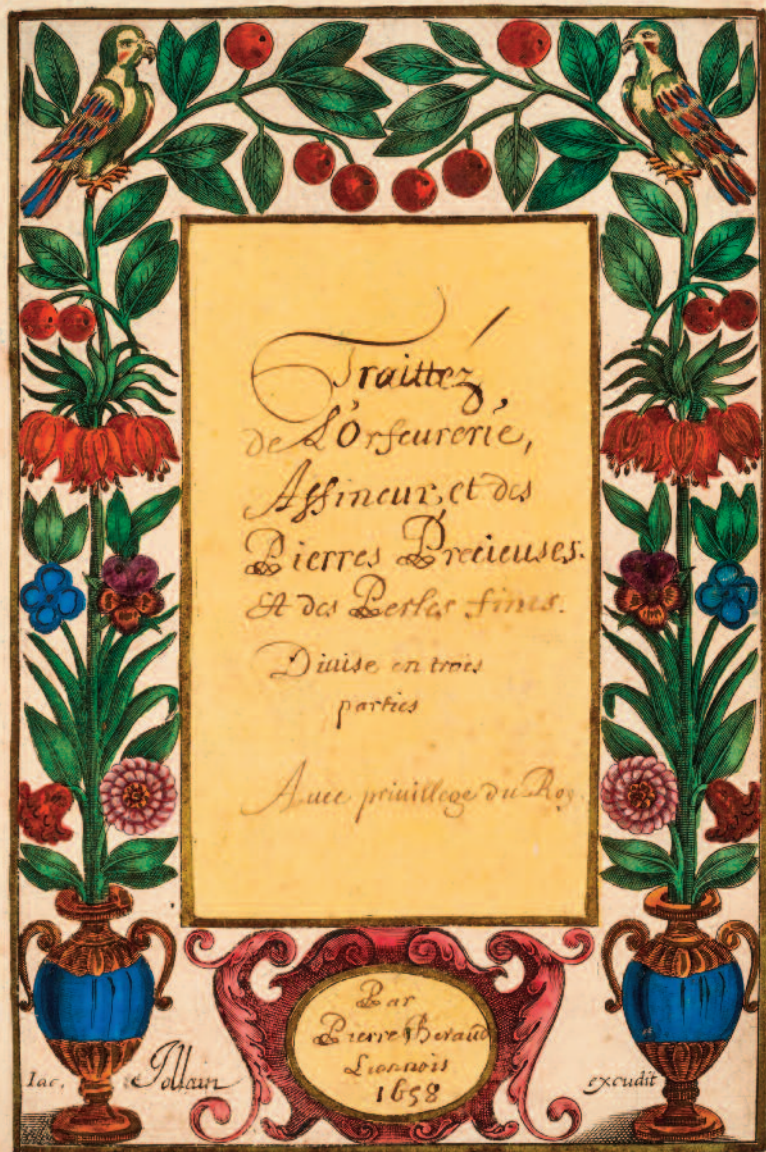 Traittez
de L'Orfeurerie,
Affineur, et des
Pierres Precieuses.
Et des Perles fines.
Diuise en trois
parties
Auec priuillege du Roy.
Par
Pierre Beraud
Lionnois
1658
Iac. Jollain excudit